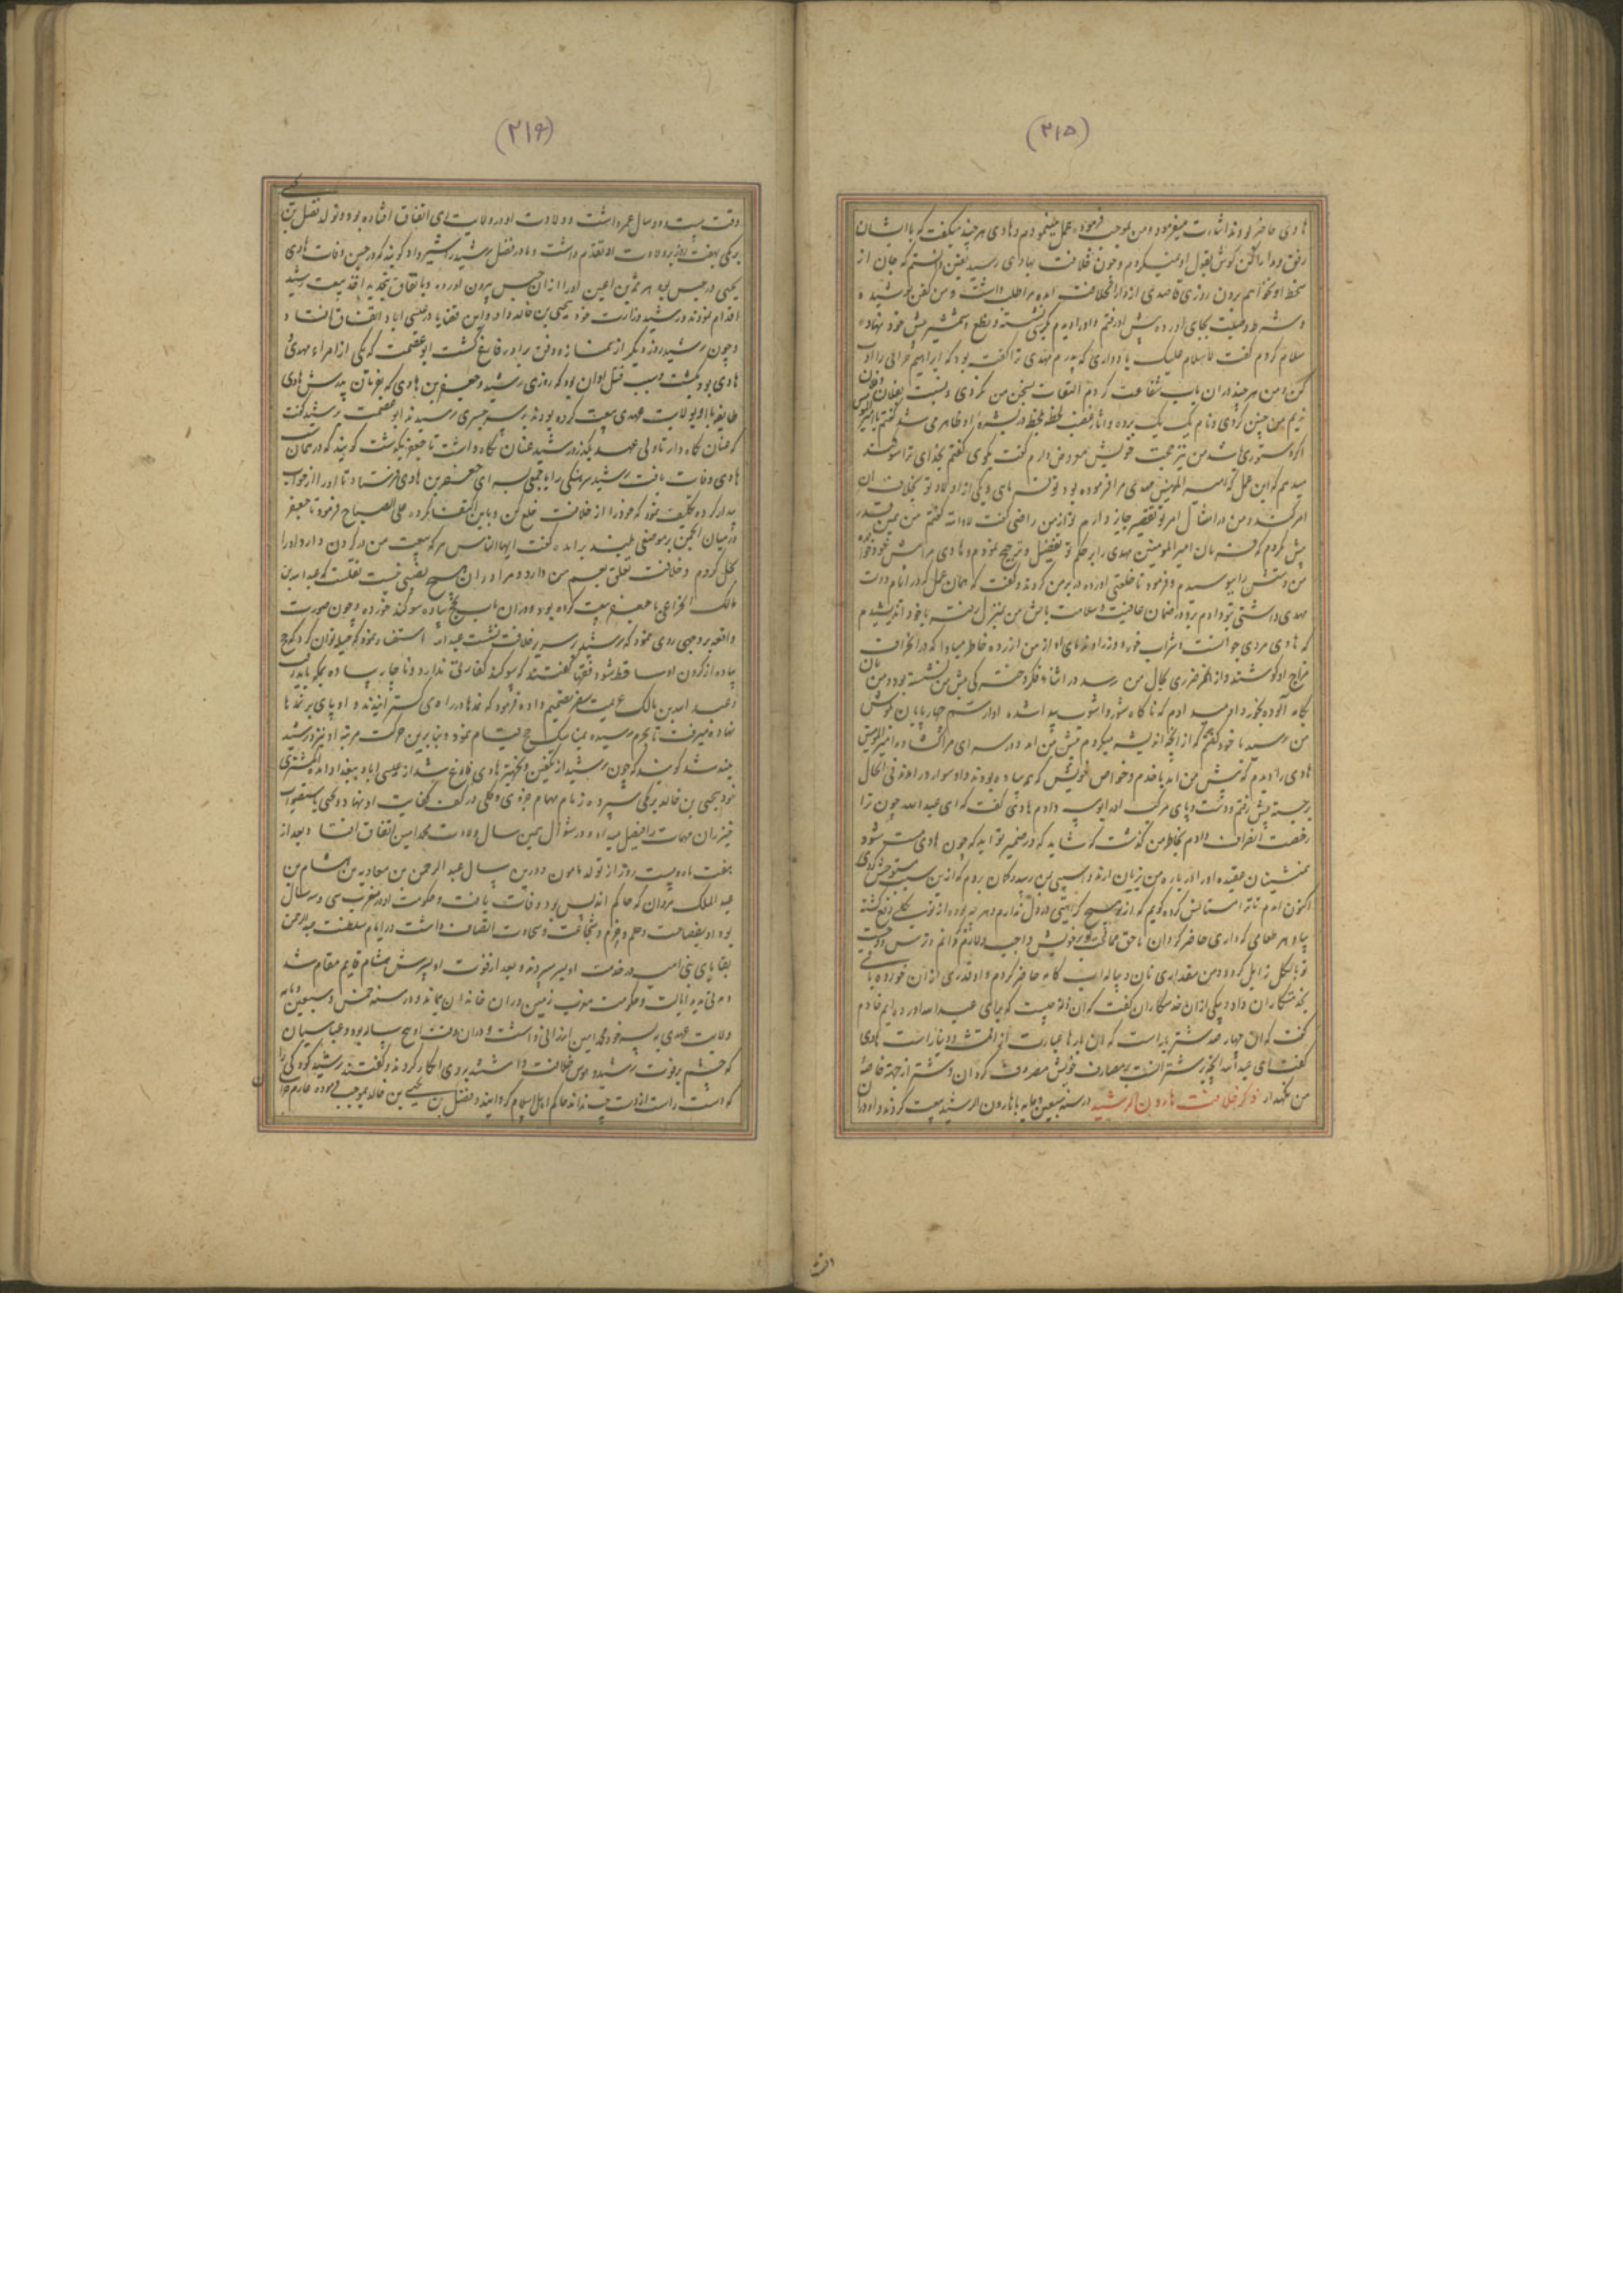 (۲۱۵)
هادی حاضر بودند اشارت میفرمود و من بموجب فرموده عمل مینمودم و هادی هر چند میگفت که با ایشان
رفق و مدارا کن گوش بقول او نمیکردم و چون خلافت بهادی رسید یقین دانستم که جان از
سخط او نخواهم برون روزی قاصدی از دار الخلافت آمده مرا طلب داشت و من کفن پوشیده
و شرط وصیت بجای آورده پیش او رفتم و او را دیدم بر کرسی نشسته و نطع و شمشیر پیش خود نهاده
سلام کردم گفت لا سلام علیک یاد داری که پدرم مهدی ترا گفته بود که ابراهیم حرانی را ادب
کن و من هر چند در آن باب شفاعت کردم التفات بسخن من نکردی و نسبت بفلان و فلان
ندیم من چنین کردی و نام یک یک برده بود و آثار غضب لحظه لحظه در بشره او ظاهر می شد گفتم یا امیر المومنین
اگر دستوری باشد من نیز حجت خویش معروض دارم گفت بگوی گفتم بخدای ترا سوگند
میدهم که این عمل که امیر المومنین مهدی مرا فرموده بود تو فرمای و یکی از اولاد تو بخلاف آن
امر کند و من در امتثال امر تو تقصیر جایز دارم تو از من راضی گفت لا والله گفتم من همین قدر
پیش کردم که فرمان امیر المومنین مهدی را بر حکم تو تفضیل و ترجیح نمودم و هادی مرا پیش خود خواند
من دستش را بوسیدم و فرمود تا خلعتی آورده در بر من کردند و گفت که همان عمل که در ایام دولت
مهدی داشتی بتو دادم برو در ضمان عافیت و سلامت باش من بمنزل رفته با خود اندیشیدم
که هادی مردی جوانست و شراب خوره و وزرا و ندمای او از من آزرده خاطر مبادا که در انحراف
مزاج او کوشند و از آن ممر ضرری بحال من رسد در اثناء فکر دخترکی پیش من نشسته بود و من نان
بکامه آلوده بخورد او میدادم که ناگاه شور و آشوب پیدا شده آواز سم چهارپایان بگوش
من رسید با خود گفتم که از آنچه اندیشه میکردم پیش من آمد و در سرای مرا گشاده امیر المومنین
هادی را دیدم که پیش من آمد با خدم و خواص خویش که همه پیاده بودند و او سوار در آمد فی الحال
برجسته پیش رفتم و دست و پای مرکب او را بوسه دادم هادی گفت که ای عبدالله چون ترا
رخصت انصراف دادم بخاطر من گذشت که شاید که در ضمیر تو آید که چون هادی مست شود
همنشینان عقیده او را در باره من بزیان آرند و آسیبی بمن رسد و گمان بردم که از این سبب متوحش گردی
اکنون آمدم تا ترا استمالت کرده گویم که از تو هیچ کراهتی در دل ندارم و هر چه بوده از تو بکلی رفع گشته
بیاور هر طعامی که داری حاضر گردان تا حق ممالحت تو بر خویش واجب و لازم گردانم و ترس و وحشت
تو بالکل زایل گردد و من مقداری نان و پیاله اب کامه حاضر کردم و او قدری از آن خورده باقی
بخدمتکاران داد و یکی از آن خدمتکاران گفت که آن زله چیست که برای عبدالله آورده ایم خادم
گفت که آن چهار صد شتر بار است که آن بارها عبارت از اقمشه و دینار است هادی
گفت ای عبدالله آنچه بر شتر انست بمصارف خویش مصروف گردان و شتر از جهة خاصه
من نگهدار ذکر خلافت هارون الرشید در سنه سبعین و مایه با هارون الرشید بیعت کردند و او در آن
(۲۱۶)
وقت بیست و دو سال عمر داشت و ولادت او در ولایت ری اتفاق افتاده بود و تولد فضل بن یحیی
برمکی بهفت روز بر ولادت او تقدم داشت و مادر فضل رشید را شیر داد گویند که در حین وفات هادی
یحیی در حبس بود هرثمه بن اعین او را از آن حبس بیرون آورده و باتفاق بتجدید اخذ بیعت رشید
اقدام نمودند و رشید وزارت خود بیحیی بن خالد داد و این قضایا در عیسی آباد اتفاق افتاد
و چون رشید روز دیگر از نماز و دفن برادر فارغ گشت ابو عصمت که یکی از امراء مهدی
هادی بود بکشت و سبب قتل او آن بود که روزی رشید و جعفر بن هادی که بفرمان پدرش هادی
طایفه با او بولایت عهدی بیعت کرده بودند بر سر جسری رسیدند ابو عصمت برشید گفت
که عنان نگاه دار تا ولی عهد بگذرد رشید عنان نگاه داشت تا جعفر بگذشت گویند که در همان شب
هادی وفات یافت رشید سرهنگی را با جمعی بسرای جعفر بن هادی فرستاد تا او را از خواب
بیدار کرده تکلیف نمود که خود را از خلافت خلع کن و باین اکتفا نکرد و علی الصباح فرمود تا جعفر
در میان انجمن بر موضعی بلند بر آمده گفت ایها الناس هر که بیعت من در گردن دارد او را
بحل کردم و خلافت تعلق بعم من دارد و مرا در آن هیچ نصیبی نیست نقلست که عبدالله بن
مالک الخزاعی با جعفر بیعت کرده بود و در آن باب بحج پیاده سوگند خورده و چون صورت
واقعه بر وجهی روی نمود که رشید بر سریر خلافت نشست عبدالله استفسار نمود که چه حیله توان کرد که حج
پیاده از گردن او ساقط شود فقها گفتند که سوگند کفارتی ندارد و ناچار پیاده بمکه باید رفت
و عبدالله بن مالک عزیمت سفر تصمیم داده فرمود که نمدها در راه می گسترانیدند و او پای بر نمدها
نهاده میرفت تا بحرم رسیده بمناسک حج قیام نمود و بنابرین حرکت مرتبه او نزد رشید
بلند شد گویند که چون رشید از تکفین و تجهیز هادی فارغ شد از عیسی آباد ببغداد آمد انگشتری
خود بیحیی بن خالد برمکی سپرده زمام مهام جزوی و کلی در کف کفایت او نهاد و یحیی باستصواب
خیزران مهمات را فیصل میداد و در شوال همین سال ولادت محمد امین اتفاق افتاد و بعد از
هفت ماه و بیست روز از تولد مامون و درین سال عبد الرحمن بن معاویه بن هشام بن
عبد الملک مروان که حاکم اندلس بود وفات یافت و حکومت او در مغرب سی و سه سال
بود او بفصاحت و حلم و حزم و شجاعت و سخاوت اتصاف داشت در ایام سلطنت عبد الرحمن
بقایای بنی امیه در خدمت او بسر میبردند و بعد از فوت او پسرش هشام قایم مقام شد
و مدتی مدید ایالت و حکومت مغرب زمین در آن خاندان بماند و در سنه خمس و سبعین و مایه
ولایت عهدی به پسر خود محمد امین ارزانی داشت و در آن وقت او پنج ساله بود و عباسیان
که چشم بر فوت رشید و هوس خلافت داشتند بر وی انکار کردند و گفتند رشید کودکی را
که دست راست از دست چپ نداند حاکم اهل اسلام گردانید و فضل بن یحیی بن خالد بموجب فرموده